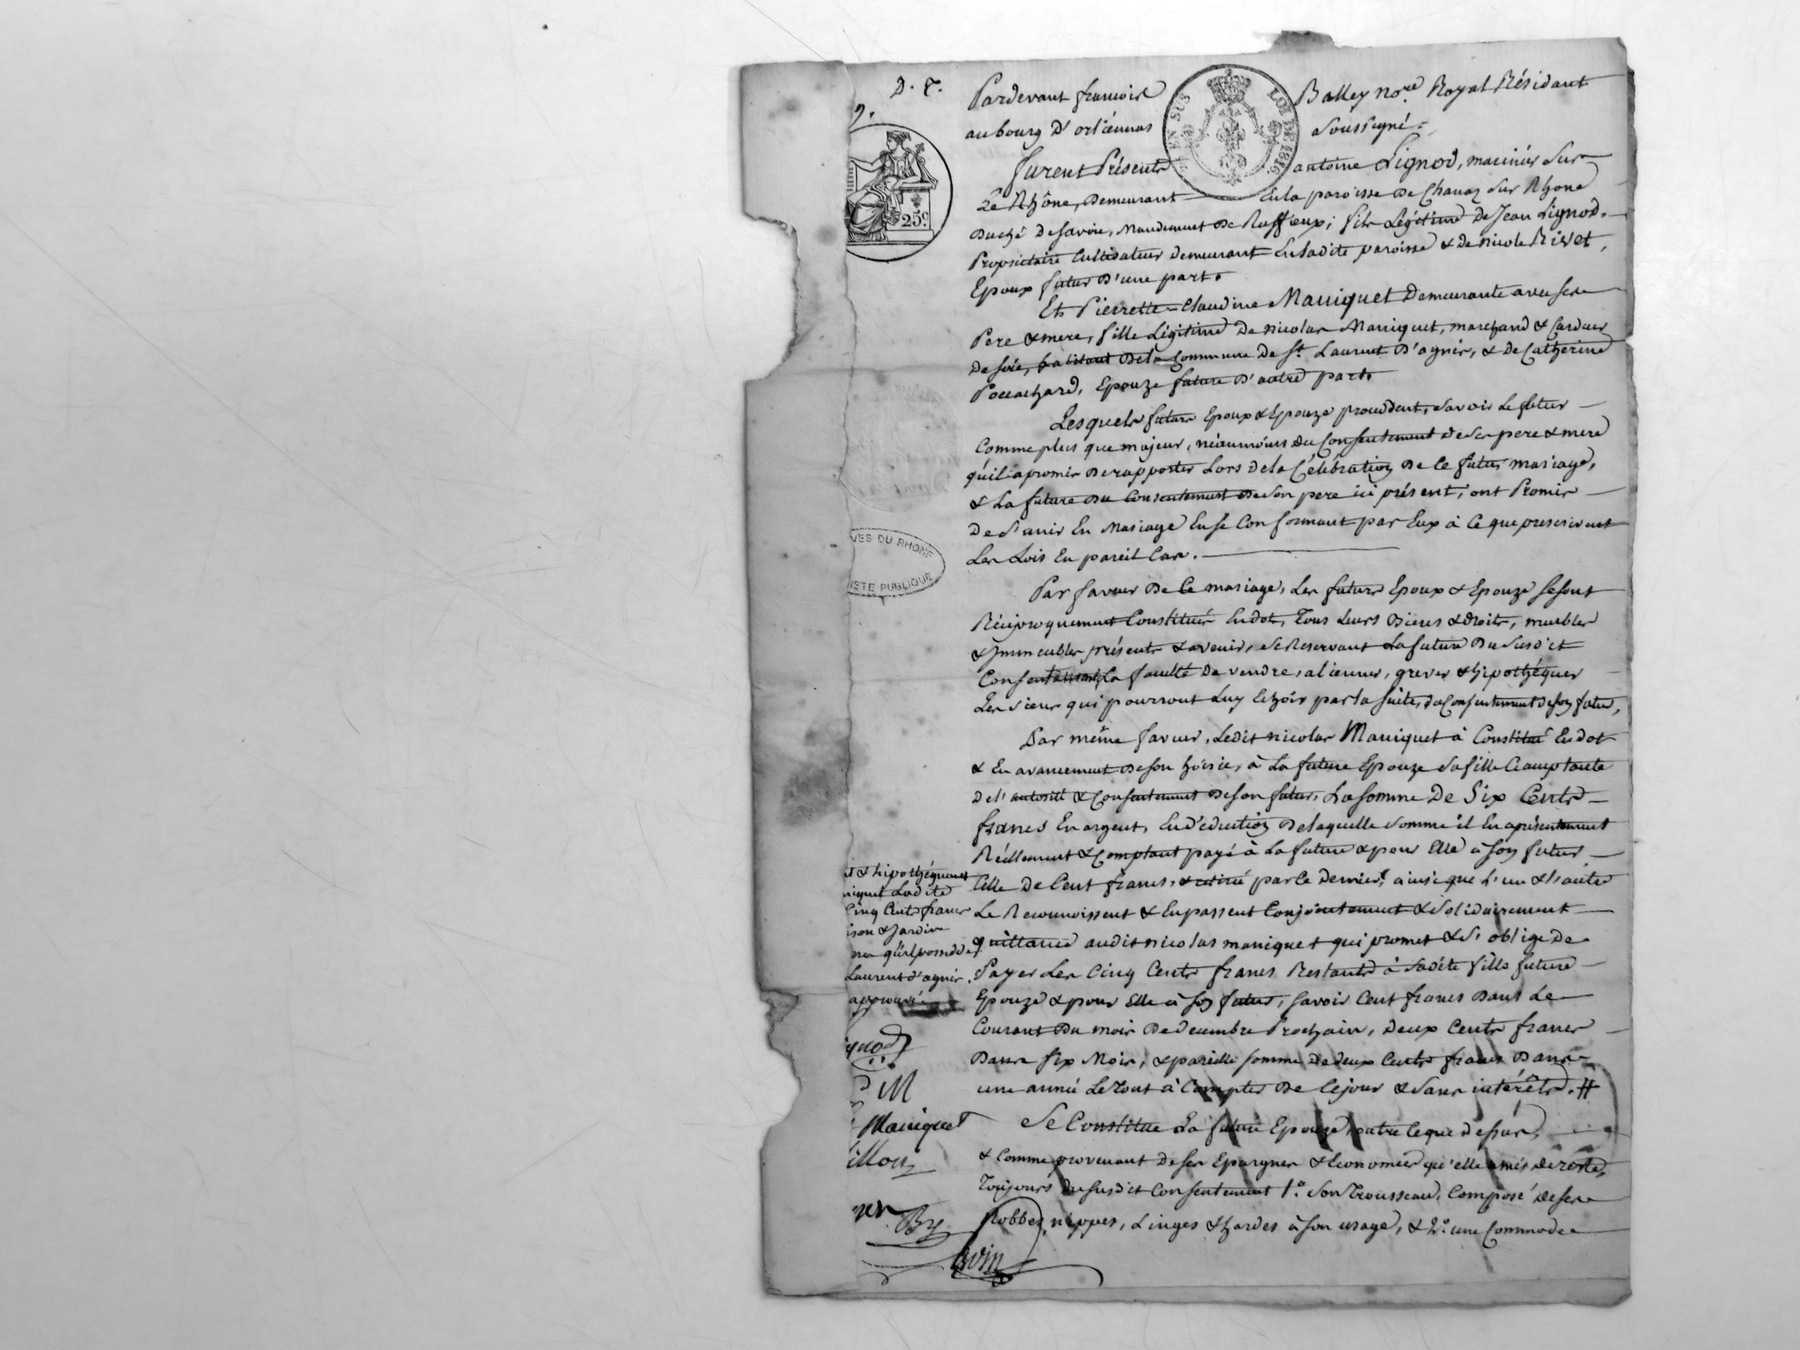 D. T.
25c
EN SUS
LOI DE 1816
Pardevant francois Balley no.re Royal Résidant
au bourg D'orliénnas Soussigné.
Furent Présents antoine Lignod, marinier Sur
Le Rhône, Demeurant En la paroisse de Chanaz Sur Rhone
Duché De Savoie, Mandement De Ruffieux; fils Légitime De Jean Lignod,
Propriétaire Cultivateur demeurant En ladite paroisse & de nicole Rivet,
Epoux futur D'une part.
Et Pierrette Claudine Maniquet Demeurante avec ses
Pere & mere, fille Légitime De nicolas Maniquet, marchand & Cardeur
De soie, habitant De la Commune De St. Laurent D'agnir, & De Catherine
Pouachard, Epouze future D'autre part.
Lesquels futurs Epoux & Epouze procedent, Savoir Le futur
Comme plus que majeur, néanmoins du Consentement de Ses pere & mere
qu'il a promis De rapporter Lors De la Célébration De Ce futur mariage,
& La future Du Consentement De Son pere ici présent, ont Promis
De S'unir En Mariage En se Conformant par Eux à Ce que prescrivent
Les Lois En pareil Cas.
Par faveur De Ce mariage, Les futurs Epoux & Epouze Se sont
Réciproquement Constitués En dot, Tous Leurs Biens & droits, meubles
& Immeubles présents & avenir, Se Reservant La future Du Susdit
Consentement La faculté De vendre, aliener, grever & hipothéquer
Les siens qui pourront Luy Echoir par la Suite, du Consentement de Son futur,
Par même faveur, Ledit nicolas Maniquet à Constitué En dot
& En avancement De Son hoirie, à La future Epouze Sa fille acceptante
De l'autorité & Consentement De Son futur, La Somme De Six Cents
francs En argent, En Déduction De laquelle Somme il En a présentement
Réellement & Comptant payé à La future & pour Elle à Son futur
Celle De Cent francs, & retiré par Ce Dernier, ainsi que L'un & L'autre
Le Reconnoissent & En passent Conjointement & Solidairement
quittance audit nicolas maniquet qui promet & S'oblige De
Payer Les Cinq Cents francs Restants à Sadite fille future
Epouze & pour Elle à Son futur, Savoir Cent francs Dans Le
Courant Du mois De decembre Prochain, Deux Cents francs
Dans Six Mois, & pareille Somme De deux Cents francs Dans
une année Le Tout à Compter De Ce jour & Sans intérêts. #
Se Constitue La future Epouze, outre Ce que Dessus,
& Comme provenant De Ses Epargnes & Economies qu'elle a mis De reste,
Toujours du Susdit Consentement 1.° Son Trousseau, Composé De Ses
Robbes, nippes, Linges & hardes à Son usage, & 2.° une Commode
VES DU RHONE
ISTE PUBLIQUE
& hipothéquant
niquet Ladite
Cinq Cents francs
ison & Jardin
qu'il possede
Laurent d'agnir.
approuvé
gnod
M
Maniquet
illon
By